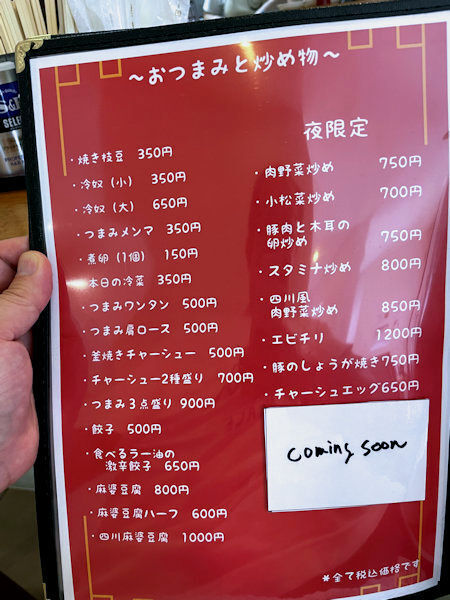 ～おつまみと炒め物～
・焼き枝豆 350円
・冷奴（小） 350円
・冷奴（大） 650円
・つまみメンマ 350円
・煮卵（1個） 150円
・本日の冷菜 350円
・つまみワンタン 500円
・つまみ肩ロース 500円
・釜焼きチャーシュー 500円
・チャーシュー2種盛り 700円
・つまみ3点盛り 900円
・餃子 500円
・食べるラー油の
激辛餃子 650円
・麻婆豆腐 800円
・麻婆豆腐ハーフ 600円
・四川麻婆豆腐 1000円
夜限定
・肉野菜炒め 750円
・小松菜炒め 700円
・豚肉と木耳の
卵炒め 750円
・スタミナ炒め 800円
・四川風
肉野菜炒め 850円
・エビチリ 1200円
・豚のしょうが焼き750円
・チャーシュエッグ650円
coming soon
*全て税込価格です